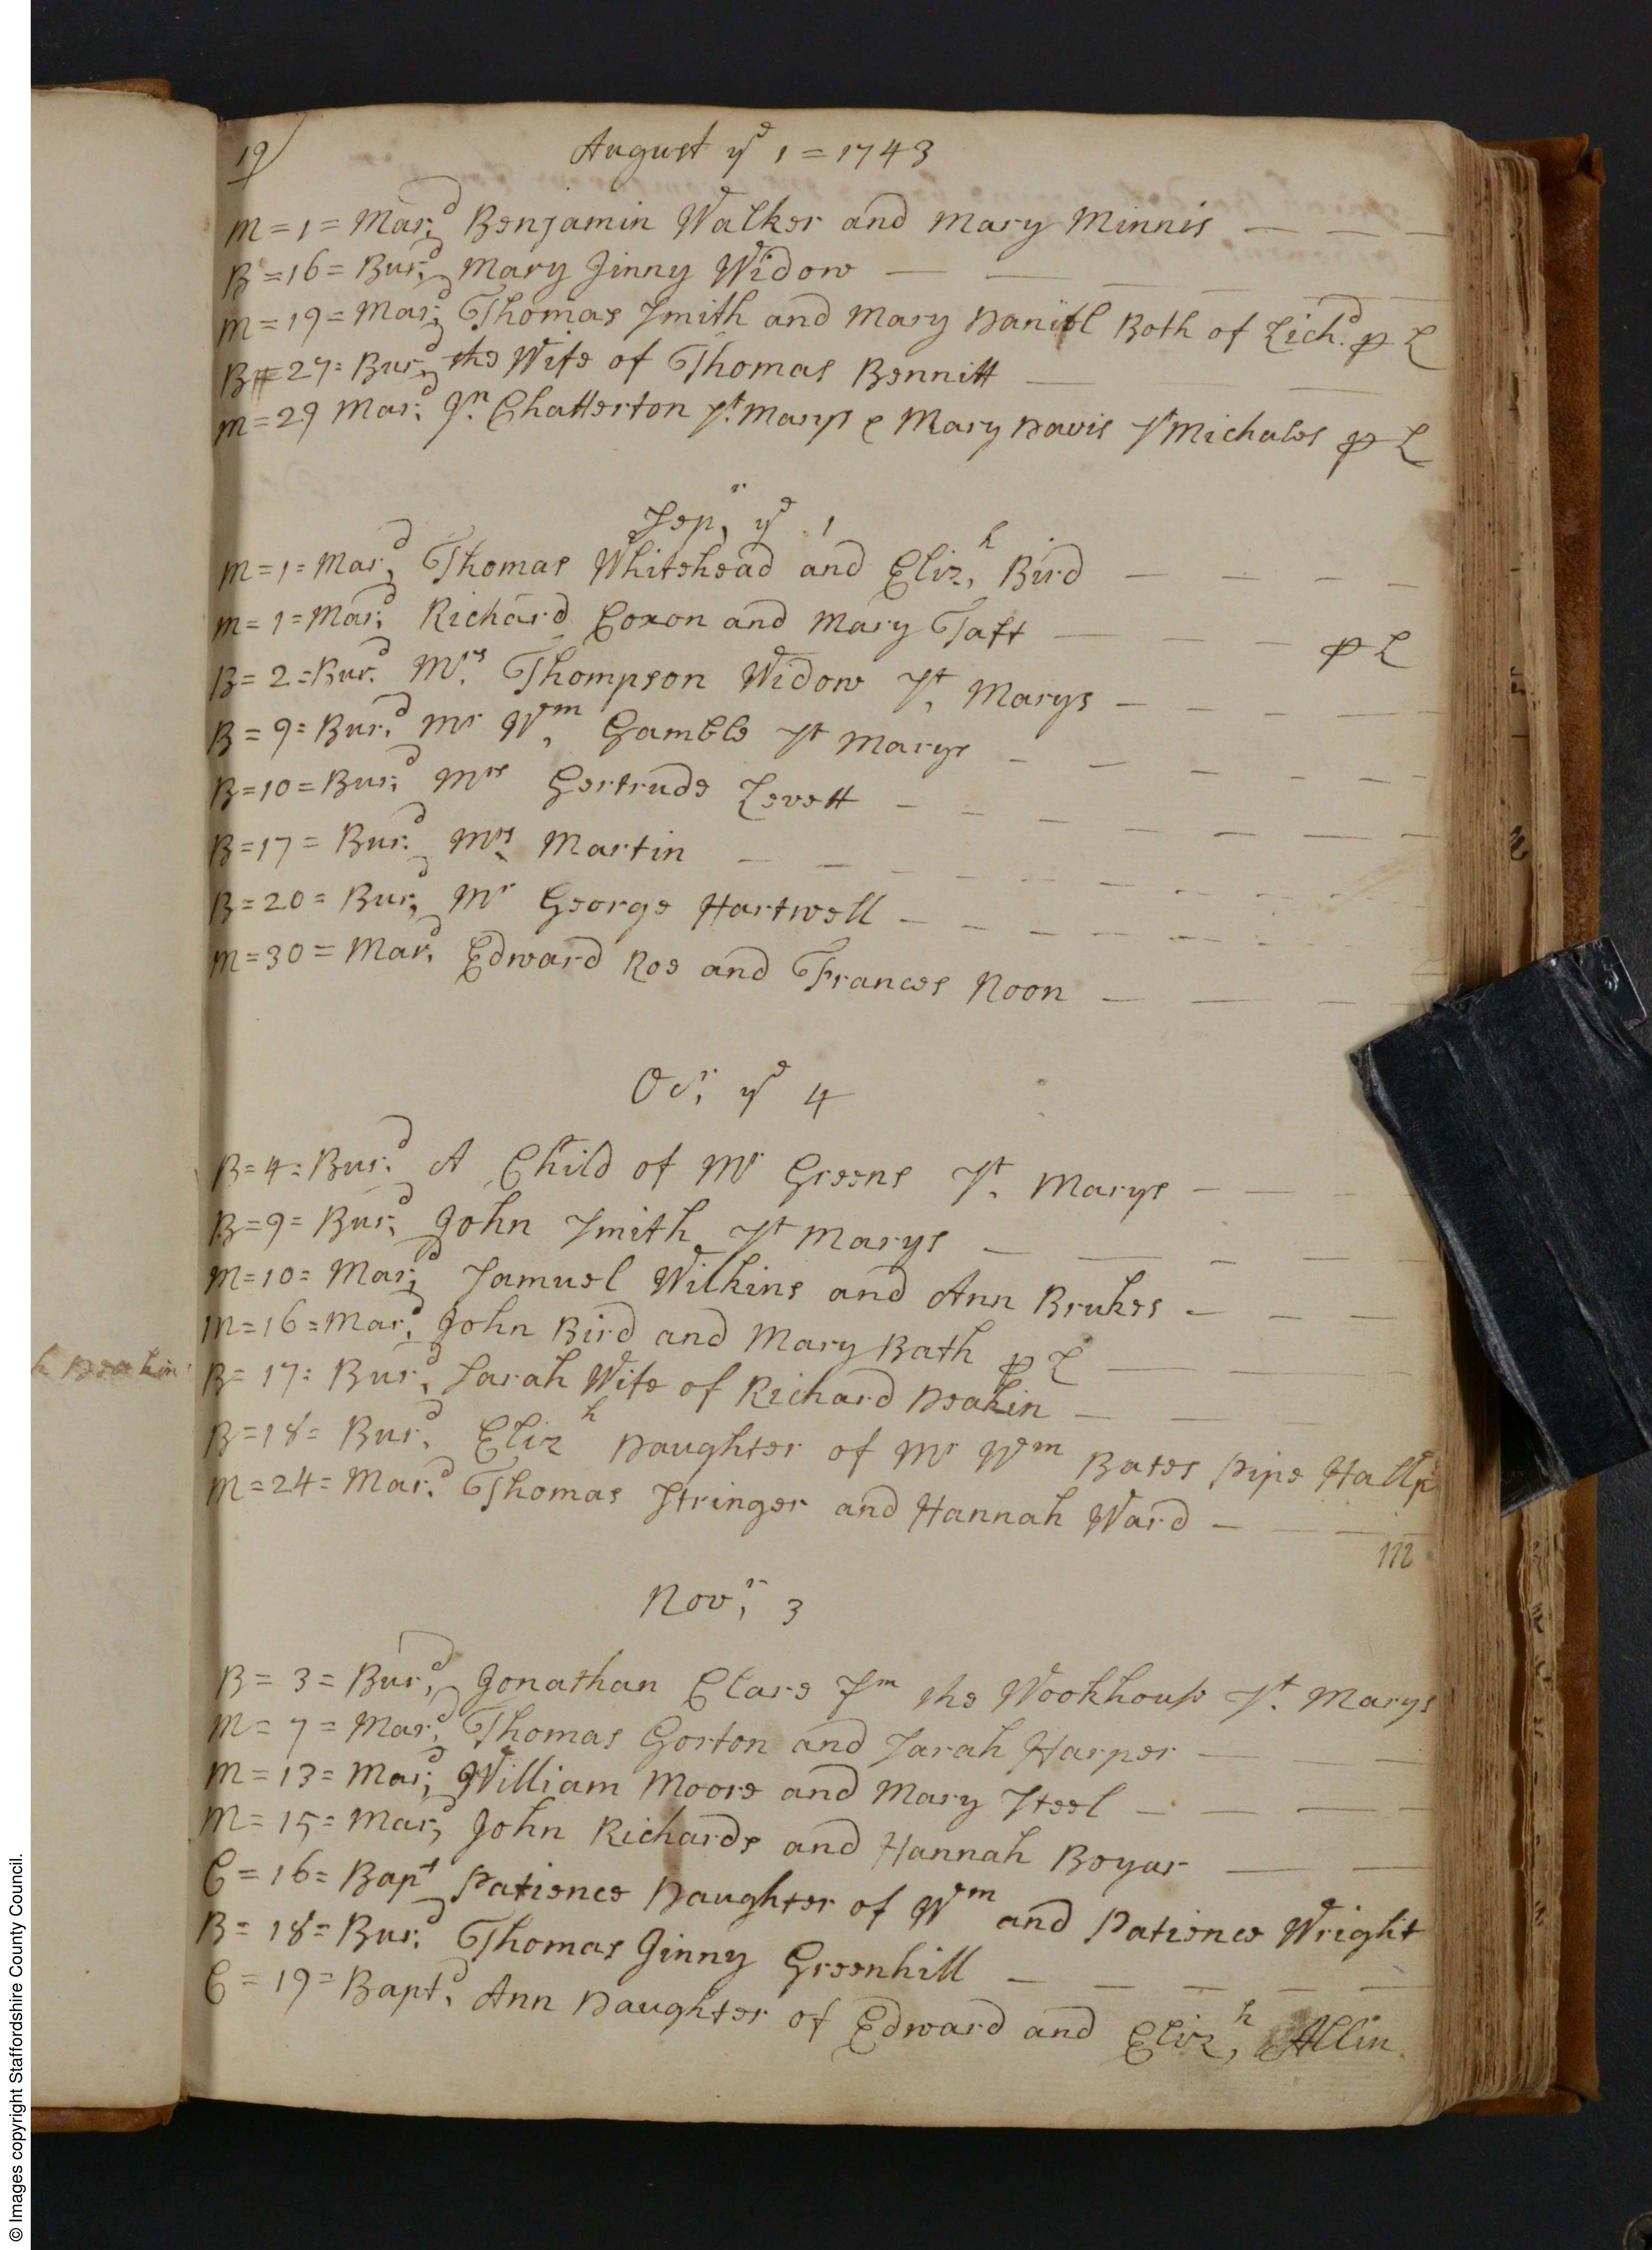 19
August ye 1 = 1743
M = 1 = Mar.d Benjamin Walker and Mary Minnis
B = 16 = Bur.d Mary Jinny Widow
M = 19 = Mar.d Thomas Smith and Mary Daniel Both of Lich.d p L
B = 27 = Bur.d the Wife of Thomas Bennitt
M = 29 Mar.d Jn. Chatterton St. Marys & Mary Davis St Michales p L
Sep.r ye 1
M = 1 = Mar.d Thomas Whitehead and Eliz.h Bird
M = 1 = Mar.d Richard Coxon and Mary Taft p L
B = 2 = Bur.d Mrs. Thompson Widow St. Marys
B = 9 = Bur.d Mr Wm. Gamble St Marys
B = 10 = Bur.d Mrs Gertrude Levett
B = 17 = Bur.d Mrs. Martin
B = 20 = Bur.d Mr George Hartwell
M = 30 = Mar.d Edward Roe and Frances Noon
Oc.r ye 4
B = 4 = Bur.d A Child of Mr Greens St. Marys
B = 9 = Bur.d John Smith St Marys
M = 10 = Mar.d Samuel Wilkins and Ann Brukes
M = 16 = Mar.d John Bird and Mary Bath p L
B = 17 = Bur.d Sarah Wife of Richard Deakin
B = 18 = Bur.d Eliz.h Daughter of Mr Wm Bates Pipe Hall
M = 24 = Mar.d Thomas Stringer and Hannah Ward
Nov.r 3
B = 3 = Bur.d Jonathan Clare Fm the Wookhouse St. Marys
M = 7 = Mar.d Thomas Gorton and Sarah Harper
M = 13 = Mar.d William Moore and Mary Steel
M = 15 = Mar.d John Richards and Hannah Boyar
C = 16 = Bapt Patience Daughter of Wm and Patience Wright
B = 18 = Bur.d Thomas Jinny Greenhill
C = 19 = Bapt.d Ann Daughter of Edward and Eliz.h Allin
© Images copyright Staffordshire County Council.